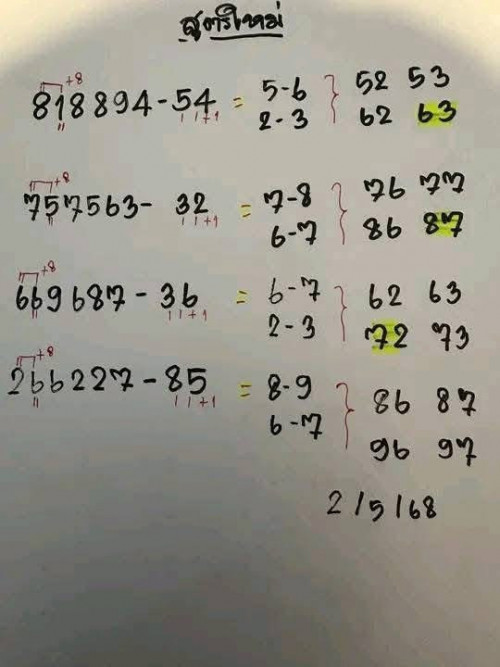 สูตรใหม่
+8
818894-54 = 5-6 52 53
11+1 2-3 62 63
+8
757563- 32 = 7-8 76 77
11+1 6-7 86 87
+8
669687-36 = 6-7 62 63
11+1 2-3 72 73
+8
266227-85 = 8-9 86 87
11+1 6-7 96 97
2/5/68